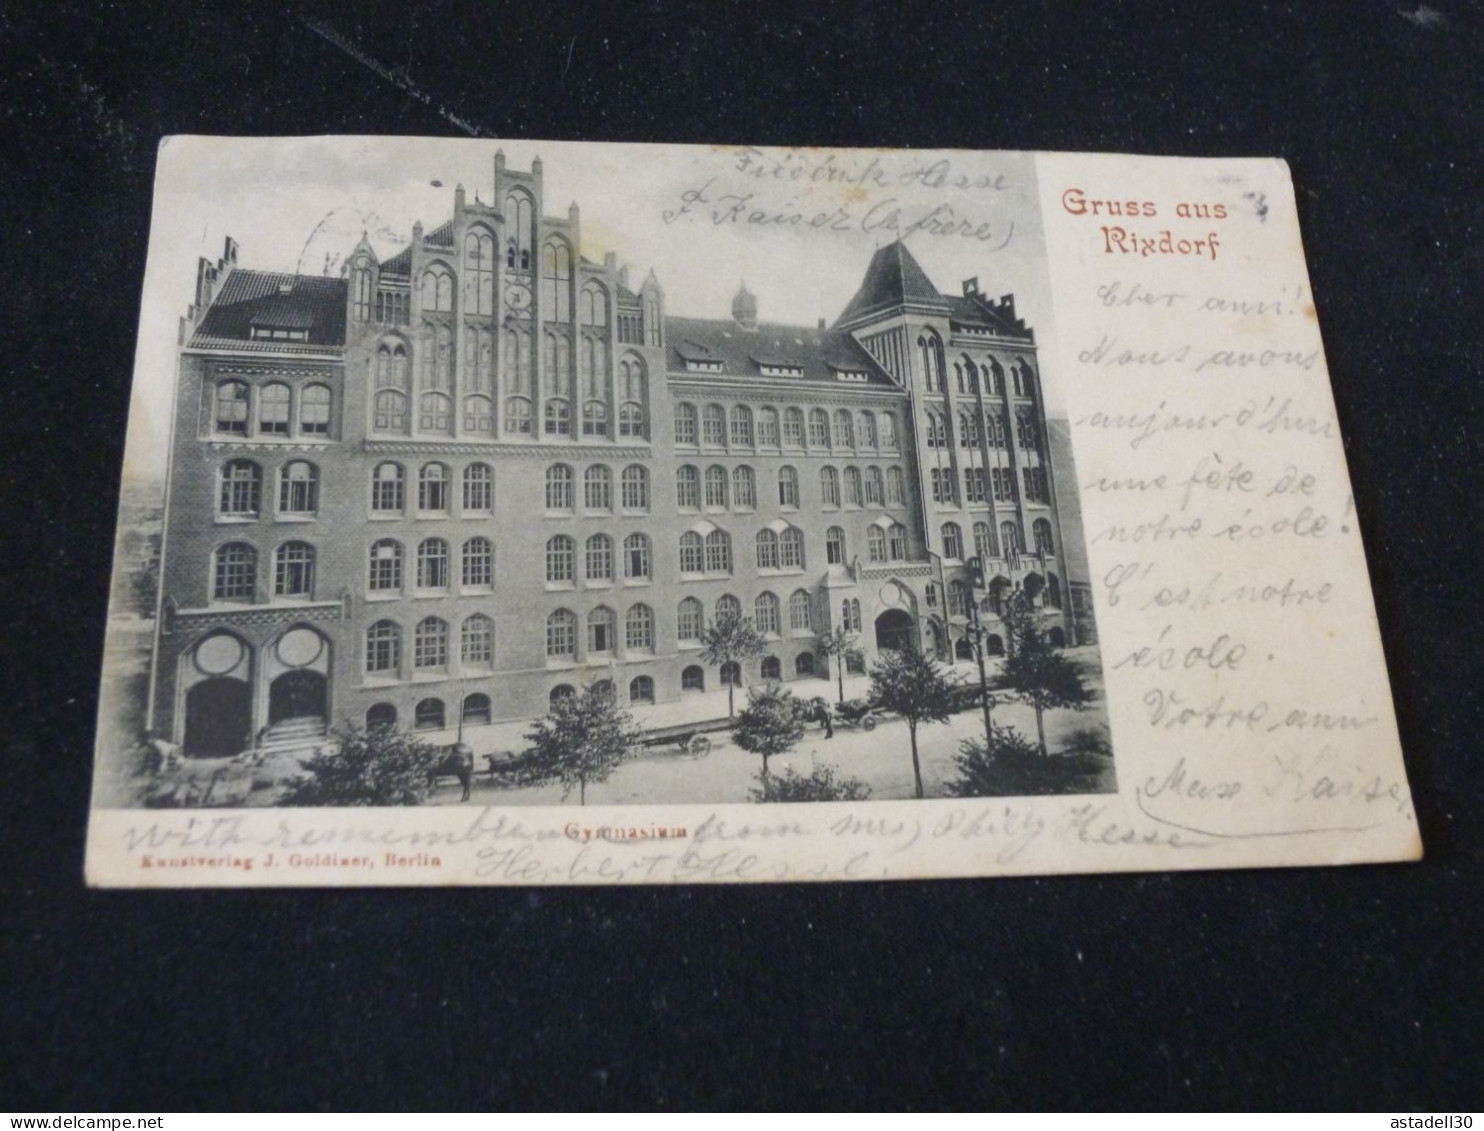 Friedrik Hesse
F. Kaiser (A frère)
Gruss aus
Rixdorf
Cher ami!
Nous avons
aujourd'hui
une fête de
notre école!
C'est notre
école.
Votre ami
Max Kaiser
with remembran from mrs Hesse
Gymnasium
Kunstverlag J. Goldiner, Berlin
Herbert Hessel.
astadell30